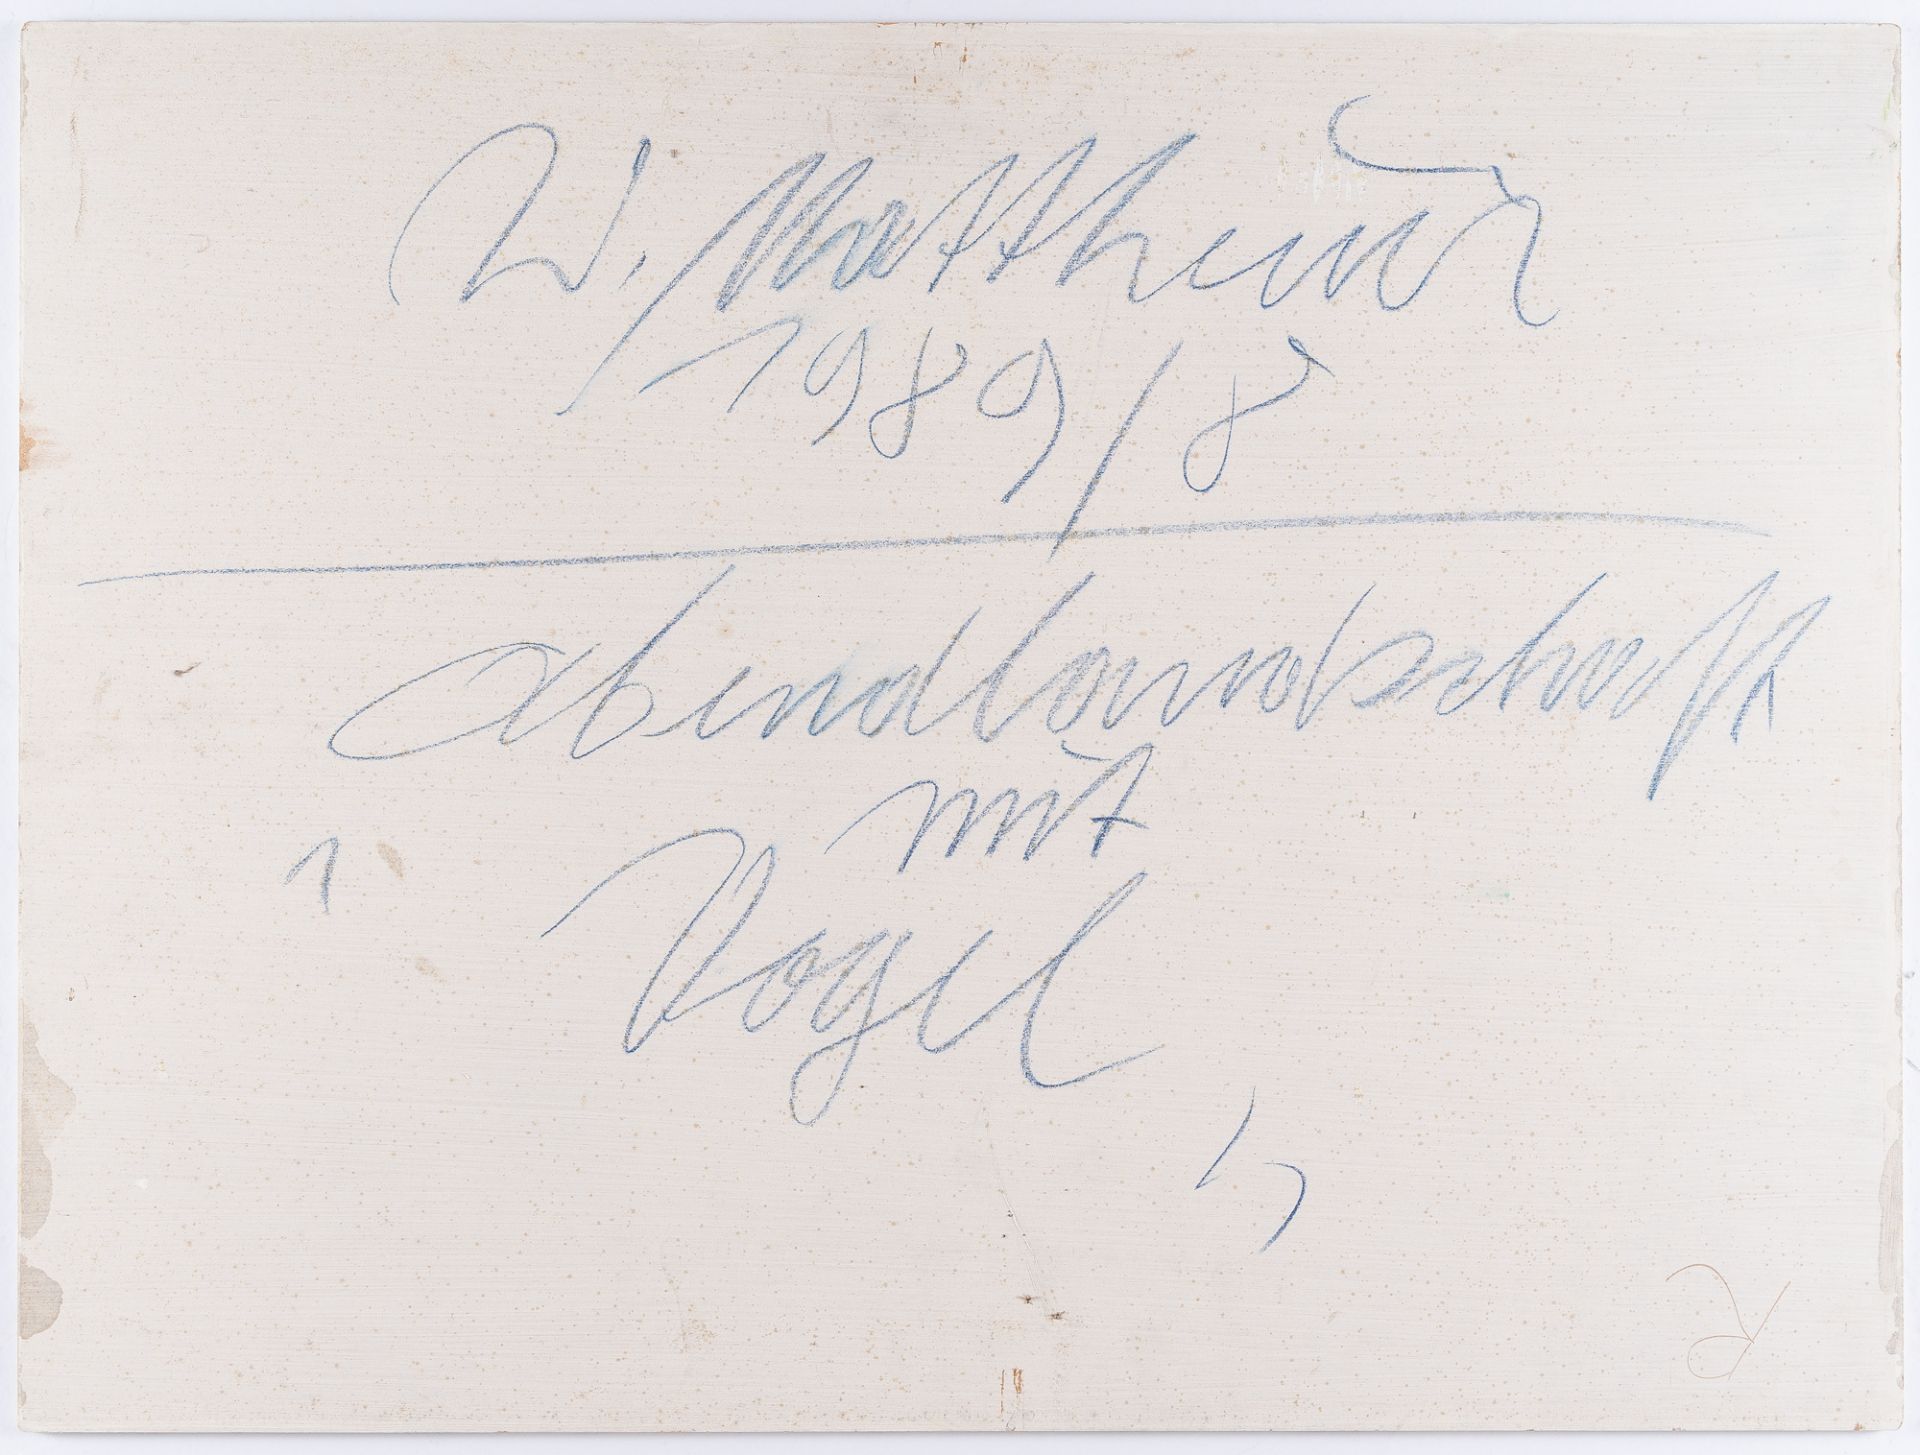 W. Mattheuer
1989/8
Abendlandschaft
mit
Vogel